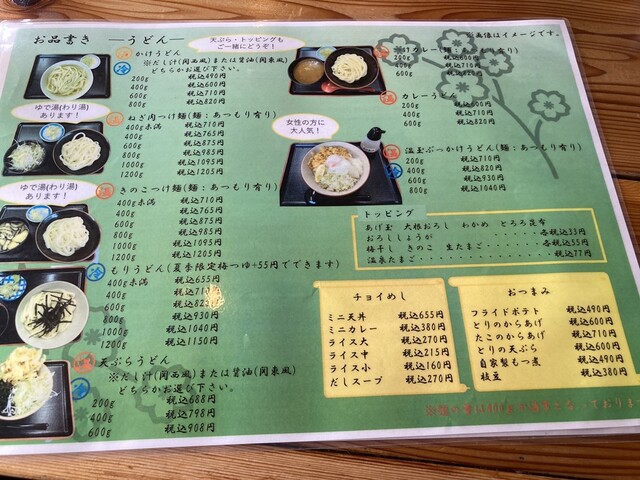 お品書き ―うどん―
天ぷら・トッピングも
ご一緒にどうぞ！
※画像はイメージです。
かけうどん
※だし汁(関西風)または醤油(関東風)
どちらかお選び下さい。
200g 税込490円
400g 税込600円
600g 税込710円
800g 税込820円
ゆで湯(わり湯)
あります！
ねぎ肉つけ麺(麺：あつもり有り)
400g未満 税込710円
400g 税込765円
600g 税込875円
800g 税込985円
1000g 税込1095円
1200g 税込1205円
ゆで湯(わり湯)
あります！
きのこつけ麺(麺：あつもり有り)
400g未満 税込710円
400g 税込765円
600g 税込875円
800g 税込985円
1000g 税込1095円
1200g 税込1205円
もりうどん(夏季限定梅つゆ+55円でできます)
400g未満 税込655円
400g 税込710円
600g
800g 税込930円
1000g 税込1040円
1200g 税込1150円
天ぷらうどん
※だし汁(関西風)または醤油(関東風)
どちらかお選び下さい。
200g 税込688円
400g 税込798円
600g 税込908円
つけカレー(麺：あつもり有り)
200g 税込600円
400g 税込710円
600g 税込820円
カレーうどん
200g 税込600円
400g 税込710円
600g 税込820円
女性の方に
大人気！
温玉ぶっかけうどん(麺：あつもり有り)
200g 税込710円
400g 税込820円
600g 税込930円
800g 税込1040円
トッピング
あげ玉 大根おろし わかめ とろろ昆布
おろししょうが ・・・・・各税込33円
梅干し きのこ 生たまご・・・・各税込55円
温泉たまご・・・・・・税込77円
チョイめし
ミニ天丼 税込655円
ミニカレー 税込380円
ライス大 税込270円
ライス中 税込215円
ライス小 税込160円
だしスープ 税込270円
おつまみ
フライドポテト 税込490円
とりのからあげ 税込600円
たこのからあげ 税込710円
とりの天ぷら 税込600円
自家製もつ煮 税込490円
枝豆 税込380円